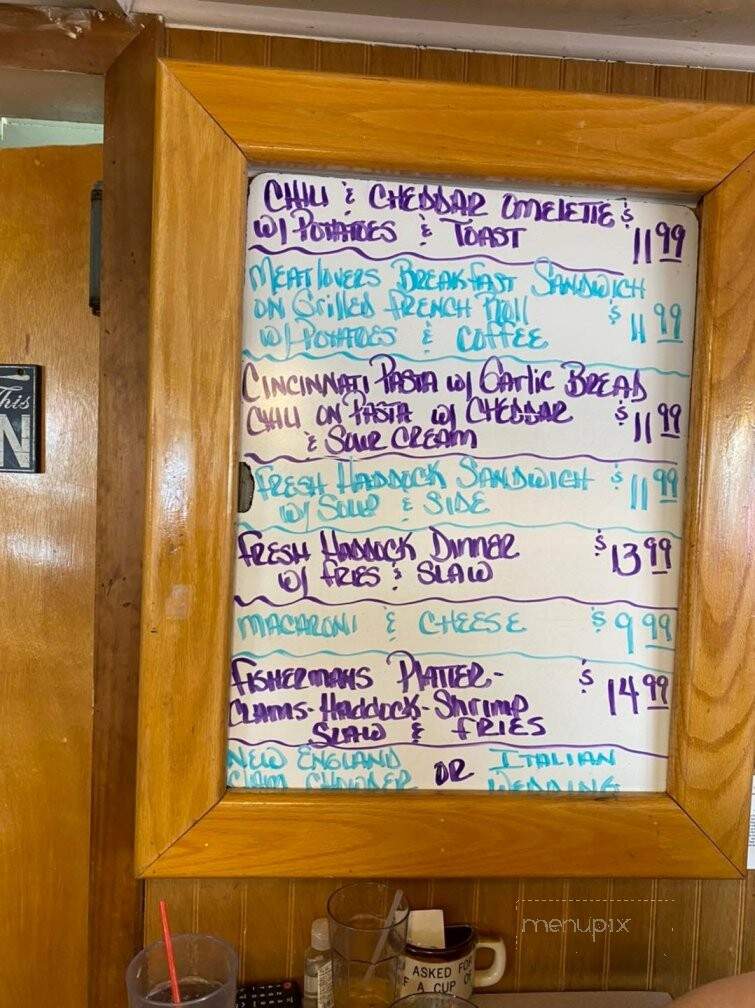 CHILI & CHEDDAR OMELETTE $
W/ POTATOES & TOAST 11.99
MEATLOVERS BREAKFAST SANDWICH
ON GRILLED FRENCH ROLL $ 11.99
W/ POTATOES & COFFEE
CINCINNATI PASTA W/ GARLIC BREAD
CHILI ON PASTA W/ CHEDDAR $ 11.99
& SOUR CREAM
FRESH HADDOCK SANDWICH $ 11.99
W/ SOUP & SIDE
FRESH HADDOCK DINNER $ 13.99
W/ FRIES & SLAW
MACARONI & CHEESE $ 9.99
FISHERMANS PLATTER- $ 14.99
CLAMS-HADDOCK-SHRIMP
SLAW & FRIES
NEW ENGLAND OR ITALIAN
CLAM CHOWDER WEDDING
This
N
ASKED FOR
A CUP OF
menupix